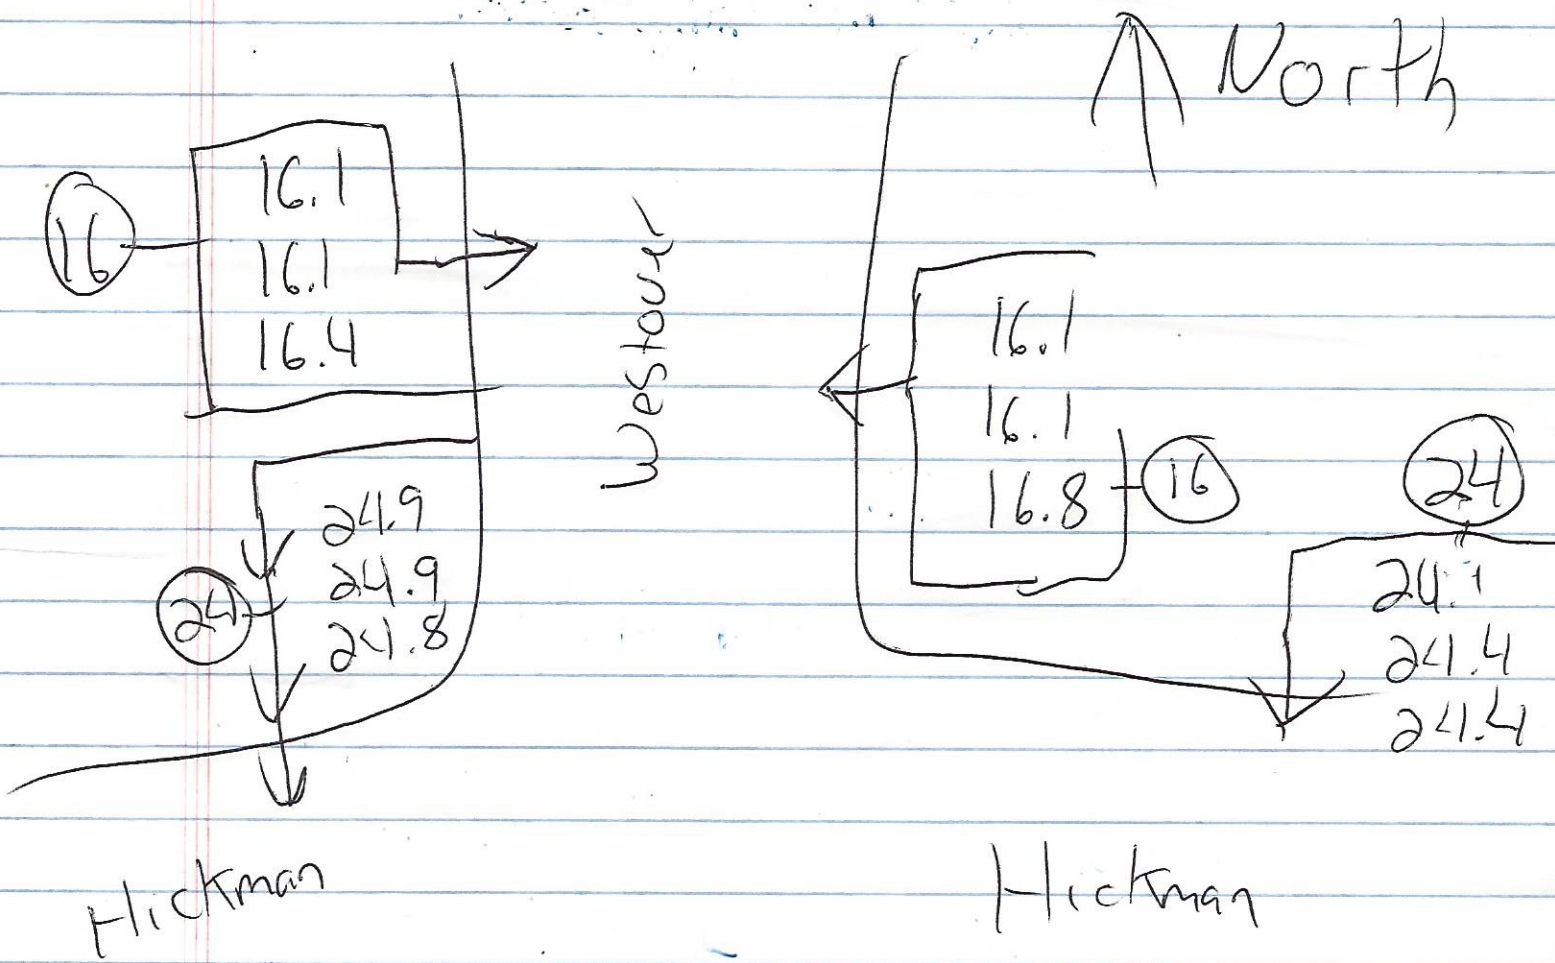 North
16
16.1
16.1
16.4
Westover
16.1
16.1
16.8
16
24
24.9
24.9
24.8
24
24.1
24.4
24.4
Hickman
Hickman